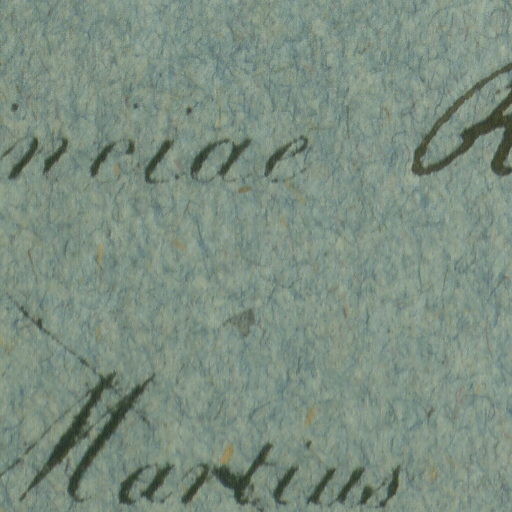 inciae
Martius